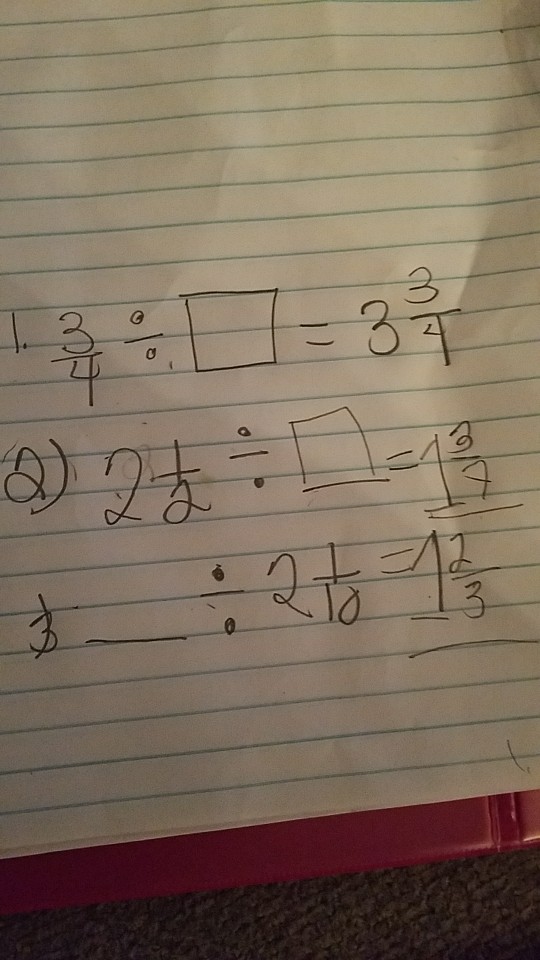 1. 3/4 ÷ □ = 3 3/4
2) 2 1/2 ÷ □ = 1 3/7
3 ___ ÷ 2 1/10 = 1 2/3